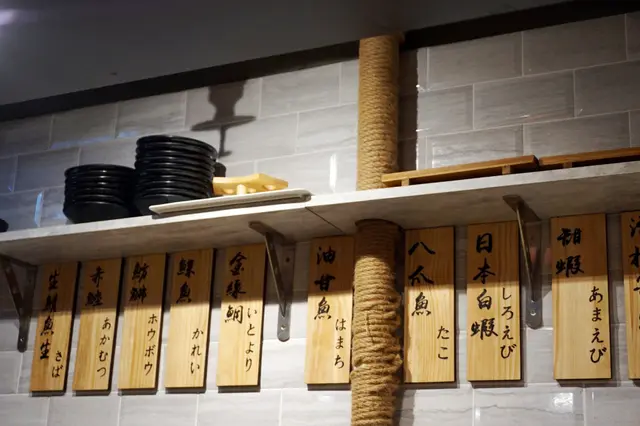 さば
赤鯥
あかむつ
魴鮄
ホウボウ
鰈魚
かれい
金線鯛
いとより
油甘魚
はまち
八爪魚
たこ
日本白蝦
しろえび
甜蝦
あまえび